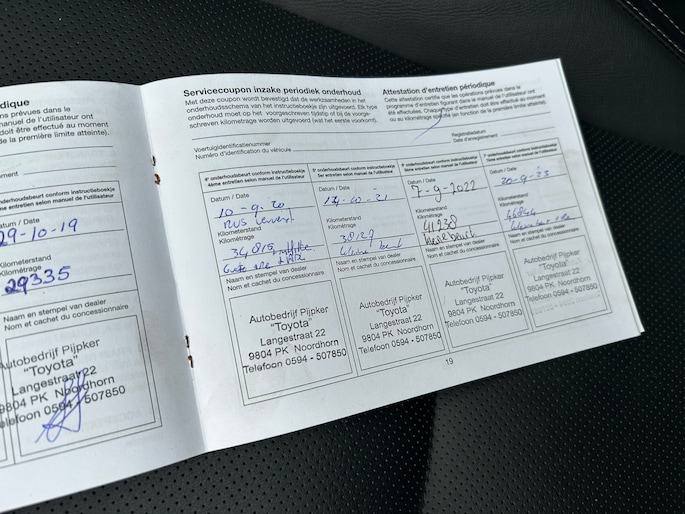 dique
prévues dans le
manuel de l'utilisateur ont
doit être effectué au moment
de la première limite atteinte).
onderhoudsbeurt conform instructieboekje
entretien selon manuel de l'utilisateur
Datum / Date
29-10-19
Kilometerstand
Kilométrage
29335
Naam en stempel van dealer
Nom et cachet du concessionnaire
Autobedrijf Pijpker
"Toyota"
Langestraat 22
9804 PK Noordhorn
Telefoon 0594 - 507850
Servicecoupon inzake periodiek onderhoud
Met deze coupon wordt bevestigd dat de werkzaamheden in het
onderhoudsschema van het instructieboekje zijn uitgevoerd. Elk type
onderhoud moet op het voorgeschreven tijdstip of bij de voorge-
schreven kilometrage worden uitgevoerd (wat het eerste voorkomt).
Attestation d'entretien périodique
Cette attestation certifie que les opérations prévues dans le
programme d'entretien figurant dans le manuel de l'utilisateur ont
été effectuées. Chaque type d'entretien doit être effectué au moment
ou au kilométrage spécifié (en fonction de la première limite atteinte).
Voertuigidentificatienummer
Numéro d'identification du véhicule
Registratiedatum
Date d'enregistrement
4e onderhoudsbeurt conform instructieboekje
4ème entretien selon manuel de l'utilisateur
Datum / Date
10-9-20
Kilometerstand
Kilométrage
34815
Naam en stempel van dealer
Nom et cachet du concessionnaire
Autobedrijf Pijpker
"Toyota"
Langestraat 22
9804 PK Noordhorn
Telefoon 0594 - 507850
5e onderhoudsbeurt conform instructieboekje
5er entretien selon manuel de l'utilisateur
Datum / Date
Kilometerstand
Kilométrage
Naam en stempel van dealer
Nom et cachet du concessionnaire
Autobedrijf Pijpker
"Toyota"
Langestraat 22
9804 PK Noordhorn
Telefoon 0594 - 507850
onderhoudsbeurt conform instructieboekje
entretien selon manuel de l'utilisateur
Datum / Date
7-9-2022
Kilometerstand
Kilométrage
41238
Naam en stempel van dealer
Nom et cachet du concessionnaire
Autobedrijf Pijpker
"Toyota"
Langestraat 22
9804 PK Noordhorn
Telefoon 0594 - 507850
onderhoudsbeurt conform instructieboekje
entretien selon manuel de l'utilisateur
Datum / Date
20-9-23
Kilometerstand
Kilométrage
Naam en stempel van dealer
Nom et cachet du concessionnaire
Autobedrijf Pijpker
"Toyota"
Langestraat 22
9804 PK Noordhorn
Telefoon 0594 - 507850
19